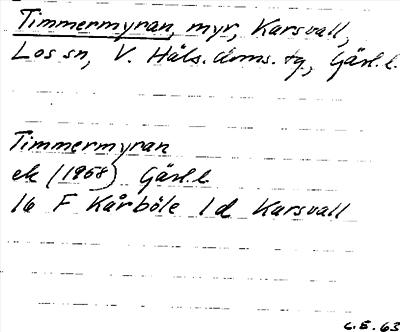 Timmermyran, myr, Karsvall,
Los sn, V. Häls. doms. tg., Gävl. l.
Timmermyran
ek (1958) Gävl. l.
16 F Kårböle 1 d Karsvall
C.E. 63